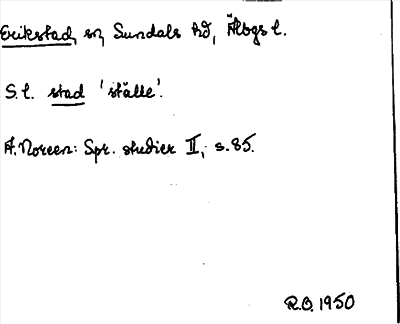 Erikstad, sn, Sundals hd, Älvbgs l.
S.l. stad 'ställe'.
A. Noreen: Spr. studier II, s. 85.
R.O. 1950